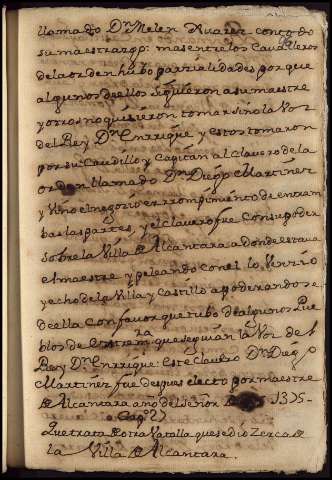 llamado Dn Melen Suarez con todo
su maestrazgo: mas entre los Cavalleros
de la orden hubo parcialidades porque
algunos de ellos siguieron a su maestre
y otros no quisieron tomar sino la Voz
del Rey Dn Enrrique y estos tomaron
por su Caudillo y Capitan al Clavero de la
orden llamado Dn Diego Martinez
y Vino el negocio en rrompimiento de entram
bas las partes, y el clavero fue con su poder
sobre la Villa de Alcantara a donde estava
el maestre y peleando con el lo Verzio
y echo de la Villa y Castillo apoderandose
de ella con favor que tubo de algunos Pue
blos de Estremra que seguian la Voz del
Rey Dn Enrrique: este Clavero Dn Diego
Martinez fue despues electo por maestre
de Alcantara año del señor 1375-
Capo 27
Que trata de otra Vatalla que se dio Zerca de
la Villa de Alcantara.